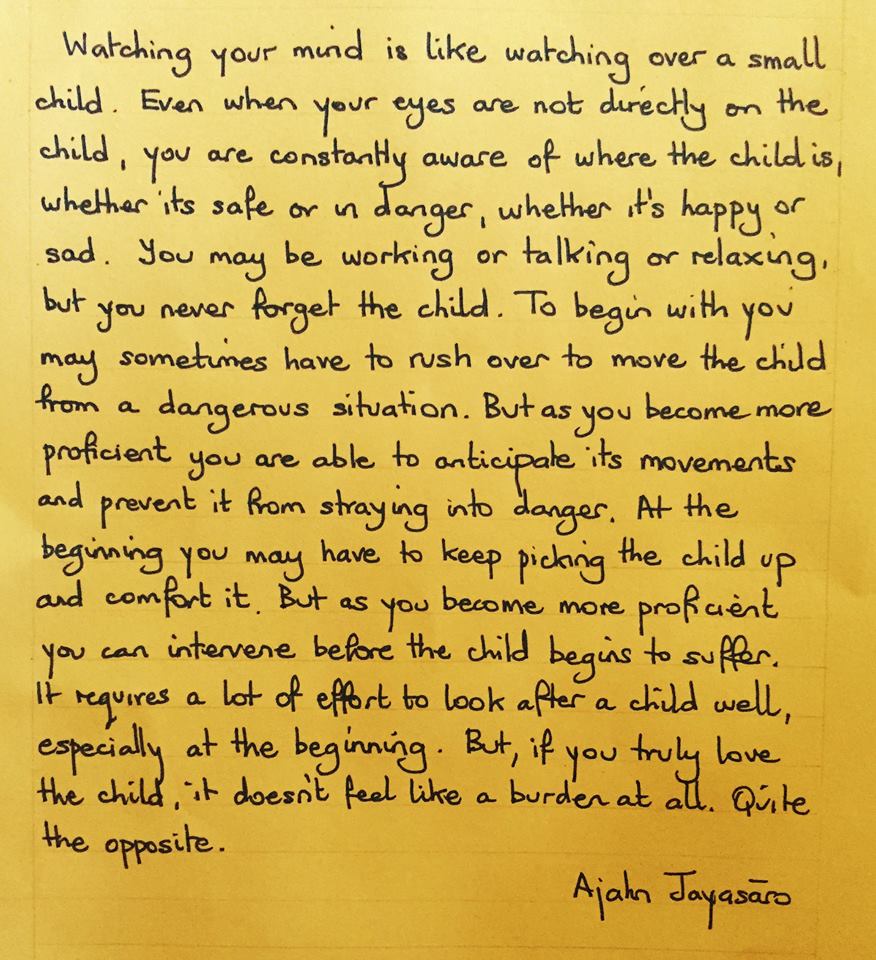 Watching your mind is like watching over a small
child. Even when your eyes are not directly on the
child, you are constantly aware of where the child is,
whether its safe or in danger, whether it's happy or
sad. You may be working or talking or relaxing,
but you never forget the child. To begin with you
may sometimes have to rush over to move the child
from a dangerous situation. But as you become more
proficient you are able to anticipate its movements
and prevent it from straying into danger. At the
beginning you may have to keep picking the child up
and comfort it. But as you become more proficient
you can intervene before the child begins to suffer.
It requires a lot of effort to look after a child well,
especially at the beginning. But, if you truly love
the child, it doesn't feel like a burden at all. Quite
the opposite.
Ajahn Jayasāro